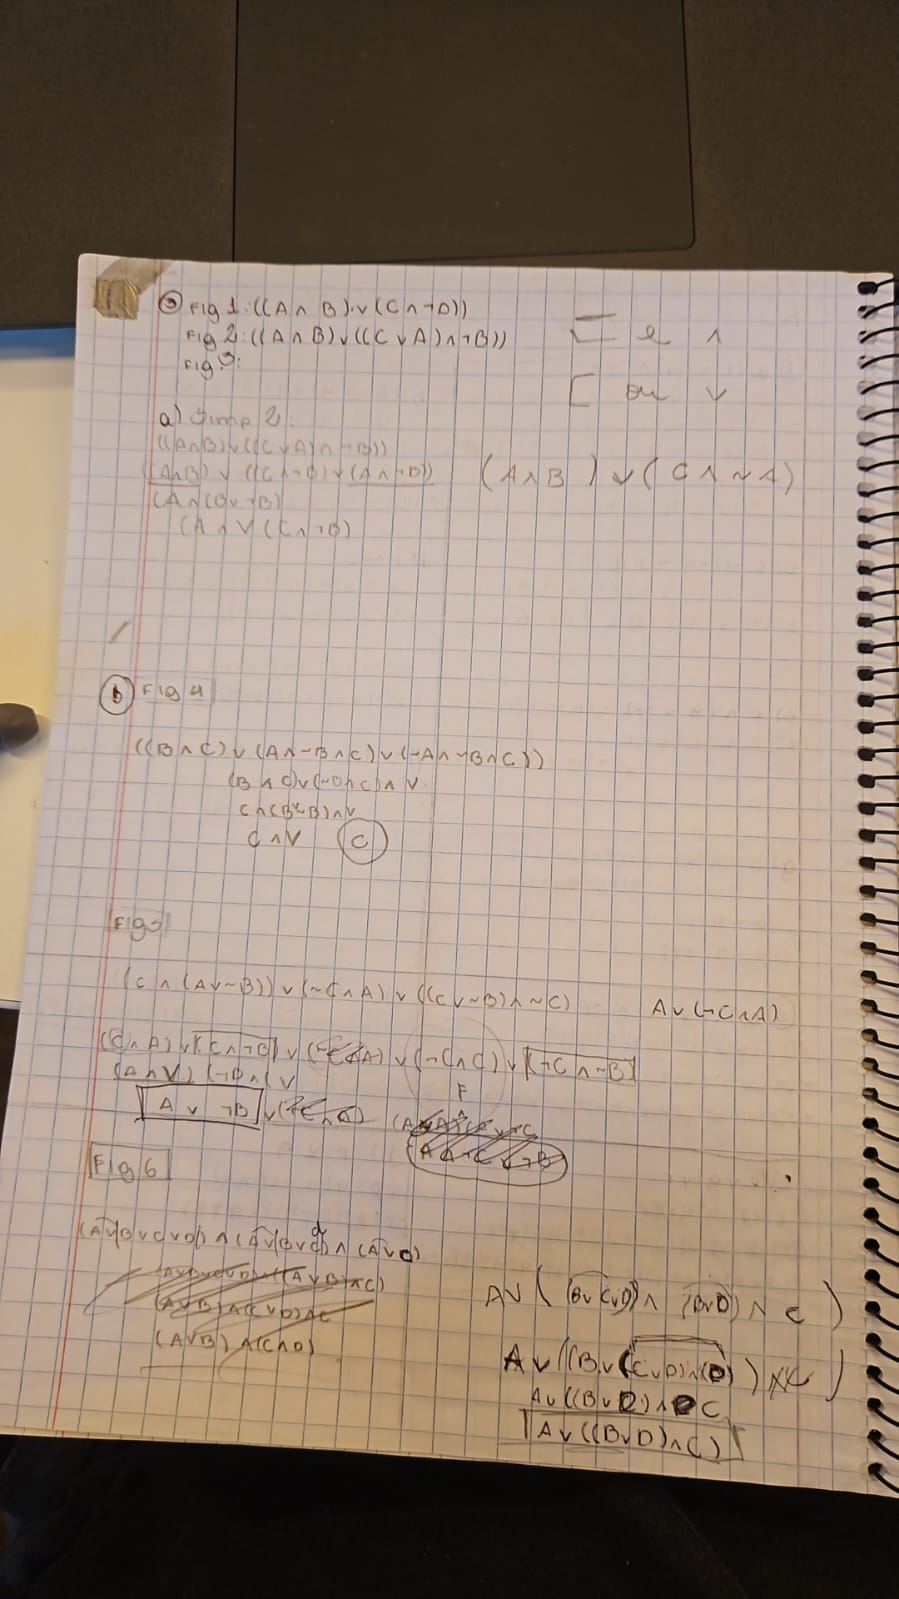 a) Fig 1: ((A ∧ B) ∨ (C ∧ ¬D))
Fig 2: ((A ∧ B) ∨ ((C ∨ A) ∧ ¬B))
Fig 3:
e ∧
ou ∨
a) Simp 2:
((A∧B) ∨ ((C∨A) ∧ ¬B))
(A∧B) ∨ ((C∧¬B) ∨ (A∧¬B))
(A ∧ B) ∨ (C ∧ ~A)
(A∧(B∨¬B)
(A ∧ V (C∧¬B)
b) Fig 4
((B ∧ C) ∨ (A ∧ ~B ∧ C) ∨ (~A ∧ ~B ∧ C))
(B ∧ C) ∨ (~B ∧ C) ∧ V
C ∧ (B ∨ ~B) ∧ V
C ∧ V C
Fig 5
(C ∧ (A ∨ ~B)) ∨ (~C ∧ A) ∨ ((C ∨ ~B) ∧ ~C)
A ∨ (¬C ∧ A)
(C ∧ A) ∨ (C ∧ ¬B) ∨ (¬C ∧ A) ∨ (¬C ∧ C) ∨ (¬C ∧ ¬B)
F
(A ∧ V) (¬B ∧ (V
A ∨ ¬B
Fig 6
(A∨B∨C∨D) ∧ (A∨B∨D) ∧ (A∨C)
(A∨B∨C∨D) ∧ ((A∨B)∧C)
(A∨B) ∧ (C∨D) ∧ C
(A∨B) ∧ (C∧D)
A ∨ ((B∨C∨D) ∧ (B∨D) ∧ C)
A ∨ ((B ∨ (C∨D) ∧ (D)) ∧ C)
A ∨ ((B ∨ D) ∧ C
A ∨ ((B∨D) ∧ C)